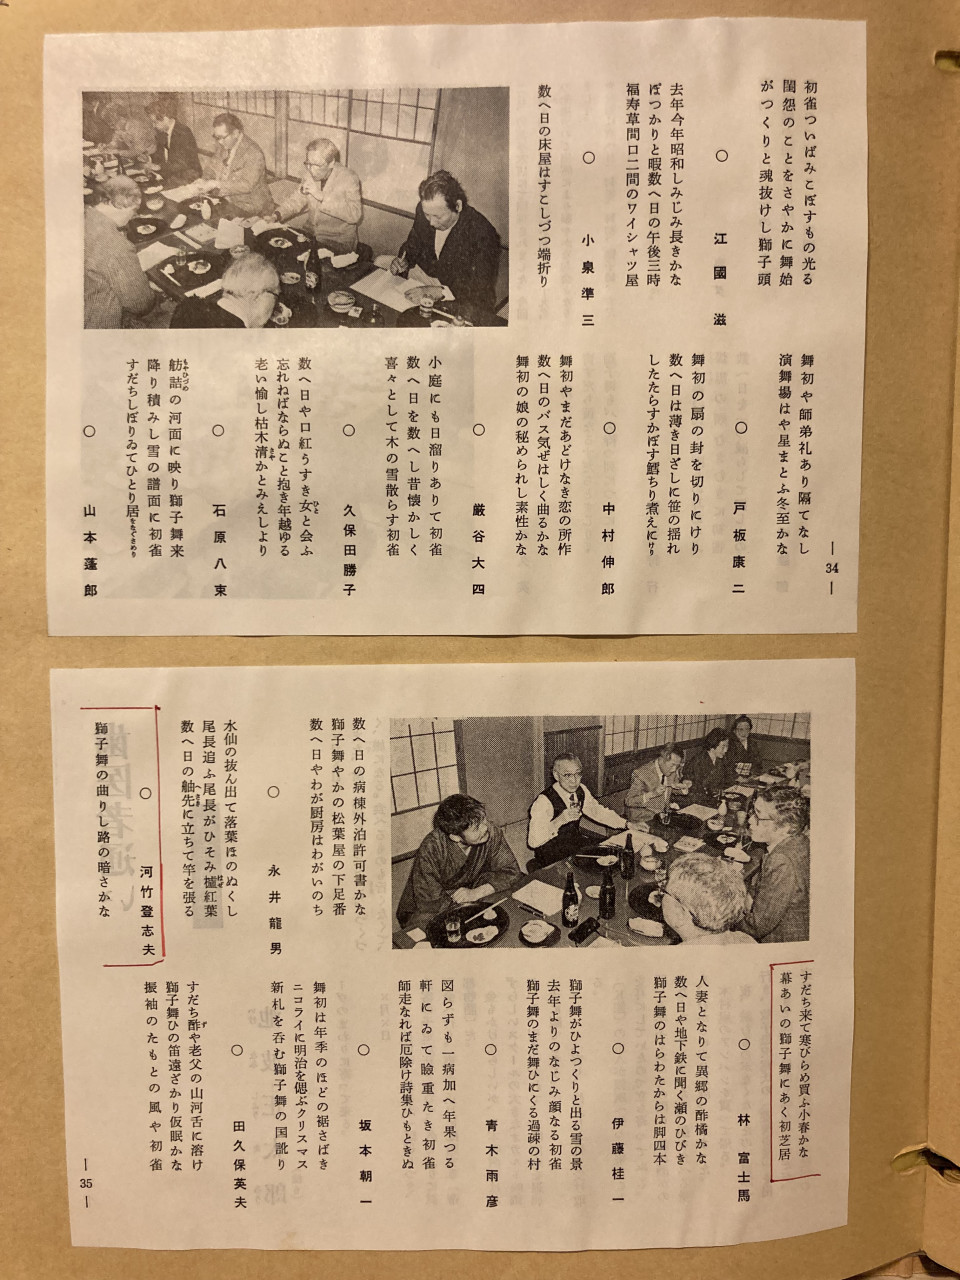 初雀ついばみこぼすもの光る
閨怨のことをさやかに舞始
がつくりと魂抜けし獅子頭
○ 江國滋
去年今年昭和しみじみ長きかな
ぽつかりと暇数へ日の午後三時
福寿草間口二間のワイシャツ屋
○ 小泉準三
数へ日の床屋はすこしづつ端折り
舞初や師弟礼あり隔てなし
演舞場はや星まとふ冬至かな
○ 戸板康二
舞初の扇の封を切りにけり
数へ日は薄き日ざしに笹の揺れ
したたらすかぼす鱈ちり煮えにけり
○ 中村伸郎
舞初やまだあどけなき恋の所作
数へ日のバス気ぜはしく曲るかな
舞初の娘の秘められし素性かな
○ 厳谷大四
小庭にも日溜りありて初雀
数へ日を数へし昔懐かしく
喜々として木の雪散らす初雀
○ 久保田勝子
数へ日や口紅うすき女と会ふ
ひと
忘れねばならぬこと抱き年越ゆる
老い愉し枯木清かとみえしより
さや
○ 石原八束
舫詰の河面に映り獅子舞来
もやひづめ
降り積みし雪の譜面に初雀
すだちしぼりゐてひとり居
をなぐさめり
○ 山本蓬郎
— 34 —
すだち来て寒びらめ買ふ小春かな
幕あいの獅子舞にあく初芝居
○ 林富士馬
人妻となりて異郷の酢橘かな
数へ日や地下鉄に聞く瀬のひびき
獅子舞のはらわたからは脚四本
○ 伊藤桂一
獅子舞がひよつくりと出る雪の景
去年よりのなじみ顔なる初雀
獅子舞のまだ舞ひにくる過疎の村
○ 青木雨彦
図らずも一病加へ年果つる
軒にゐて瞼重たき初雀
師走なれば厄除け詩集ひもときぬ
○ 坂本朝一
舞初は年季のほどの裾さばき
ニコライに明治を偲ぶクリスマス
新札を呑む獅子舞の国訛り
○ 田久保英夫
すだち酢や老父の山河舌に溶け
ず
獅子舞ひの笛遠ざかり仮眠かな
振袖のたもとの風や初雀
数へ日の病棟外泊許可書かな
獅子舞やかの松葉屋の下足番
数へ日やわが厨房はわがいのち
○ 永井龍男
水仙の抜ん出て落葉ほのぬくし
尾長追ふ尾長がひそみ櫨紅葉
はぜ
数へ日の舳先に立ちて竿を張る
へさき
○ 河竹登志夫
獅子舞の曲りし路の暗さかな
— 35 —